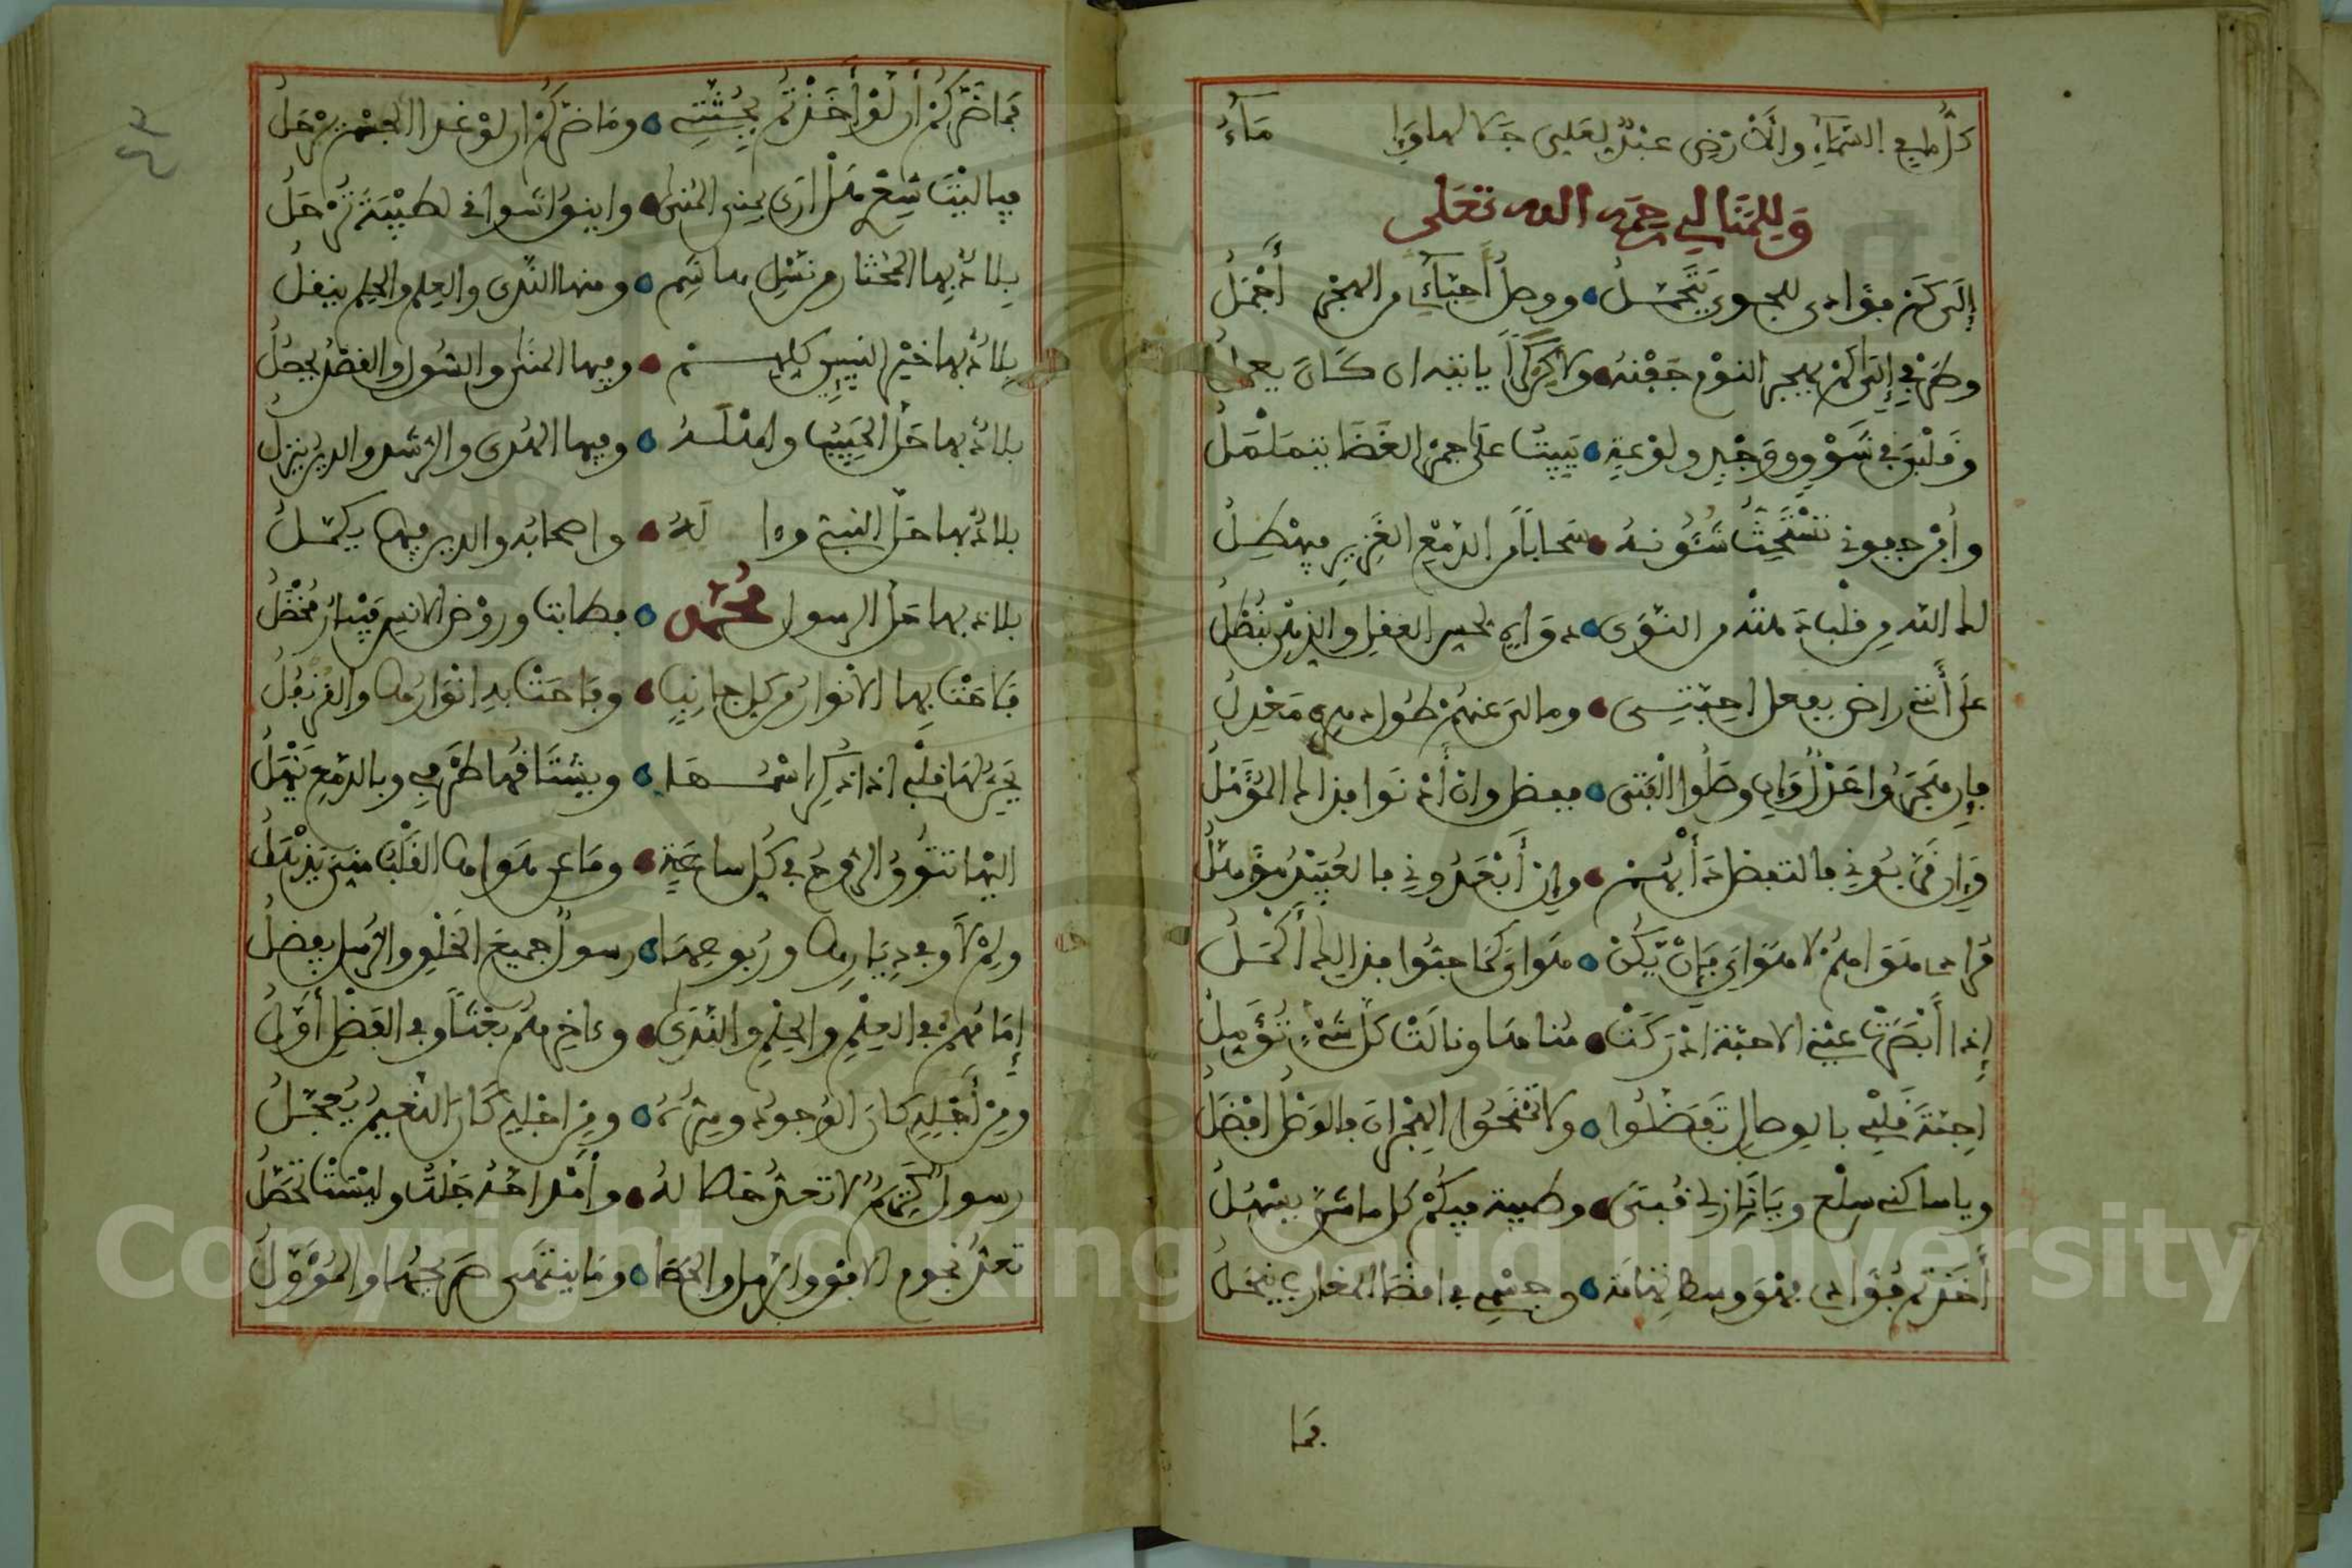 كل ما في السماء والارض عبد لعلى جلالها وإماء
وللمنالي رحمه الله تعلى
إلى كم فؤادي للجوى يتحمل ووصل أحبائي من الهجر أجمل
وطرفي إلى كم يهجر النوم جفنه ولا كرى يا تيه ان كان يعمل
وقلبي في شوق ووجد ولوعة يبيت على جمر الغضا يتململ
وأجر جفوني تستحث شئونه سحابا من الدمع الغزير فيهطل
على أنني راض بفعل احبتي ومالي عنهم طول دهري معدل
فإن هجروا عزلا وإن وصلوا الفتى ففضل وان أدنوا فذاك المؤمل
وإن قربوني فالتفضل دأبهم وإن أبعدوني فالعبيد مؤمل
مرادي هواهم لا هواي فإن يكن هواي كما حبوا فذلك أكمل
إذا أبصرت عيني الاحبة ادركت مناها ونالت كل شيء تؤمل
احبة قلبي بالوصال تفضلوا ولا تمنحوا الهجران فالوصل افضل
ويا ساكني سلع ويا نازلي قبى وطيبة فيكم كل ما شق يسهل
أخذتم فؤادي فهو وسط تهامة وجسمي في اقصا المغارب ينحل
فما
فما ضركم أن لو أخذتم بجثتي وما ضركم ان لو غدا الجسم يرحل
فيا ليت شعري هل أرى بمنى المنى واينق اشواقي لطيبة ترحل
بلاد بها المختار من نسل هاشم ومنها الندى والعلم والحلم ينقل
بلاد بها خير النبيين كلهم وفيها المنى والسول والقصد يحصل
بلاد بها حل الحبيب واهله وفيها الهدى والرشد والدين ينزل
بلاد بها حل النبي وءاله واصحابه والدين فيها يكمل
بلاد بها حل الرسول محمد فطابت وروض الانس فيها مخضل
فلاحت بها الانوار من كل جانب وفاحت به انوارها والقرنفل
يحن لها قلبي اذا ذكر اسمها ويشتاقها طرفي وبالدمع يهمل
اليها تتوق الروح في كل ساعة وما عن هواها القلب مني يذهل
ولم لا وفي ديارها وربوعها رسول جميع الخلق والرسل يفضل
إمامهم في العلم والحلم والندى وءاخرهم بعثا وفي الفضل أول
ومن أجله كان الوجود وسره ومن اجله كان النعيم يعجل
رسول كريم لا تعد خصاله وأمداحه جلت وليست تحصل
تعد نجوم الافق والرمل والحصا وما ينتهي